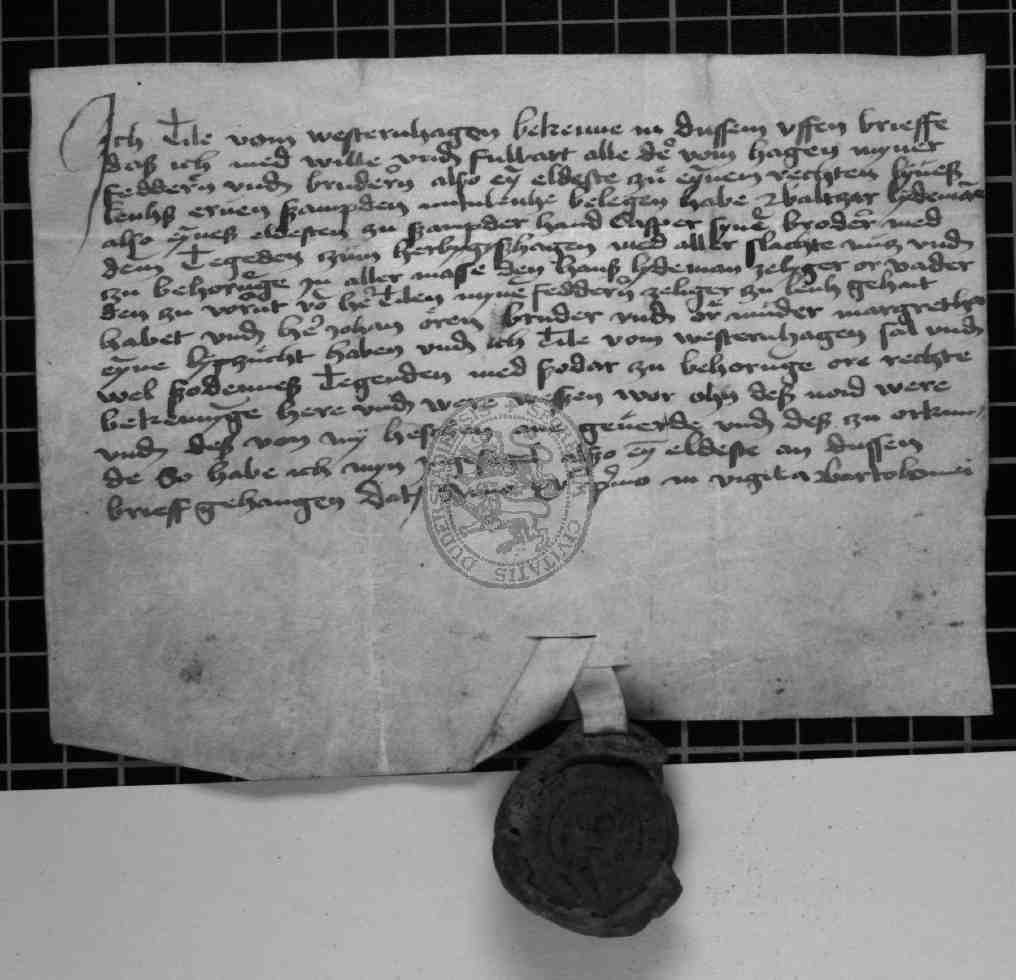 Ich Tile vom westernhagen bekenne in dussem uffen brieffe
daß ich med wille vnd fulbart alle der vom hagen myner
feddern vnd brudern alßo ey eldeste zu eynem rechten
lenhß erven ßampden belegen habe Baltzar lydeman
alßo eyneß eldesten zu ßampder hand Casper syne broder med
dem Tegeden zum herbygyßhagen med aller slachte nutz vnd
zu behorunge In aller masse den hanß lydeman zeliger or vader
den zu vornt vo her Tilen myne feddern zeliger zu lenh gehat
habet vnd her Johan oren bruder vnd or muder margretha
eyne lypzucht haben vnd ich Tile vom westernhagen sal vnd
wel ßodenneß Tegenden med ßodar zu behorunge ore rechte
bekennige here vnd were weßen wor ohn deß noid were
vnd deß von my heßßen ane geuerde vnd deß zu orkun
de So habe ich myn alßo ey eldeste an dussen
brieff gehangen Dat in vigilia Bartolomei
SIGILLUM CIVITATIS DUDERST